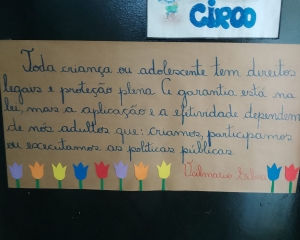 CIRCO
Toda criança ou adolescente tem direitos
legais e proteção plena A garantia está na
lei, mas a aplicação e a efetividade dependem
de nós adultos que: criamos, participamos
ou executamos as políticas públicas.